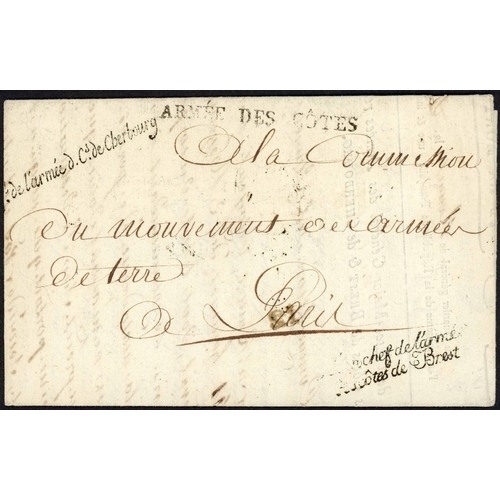 ARMÉE DES CÔTES
de l'armée d. C. de Cherbourg
A la Commission
du mouvement des armées
de terre
de Paris
chef de l'armé
Côtes de Brest